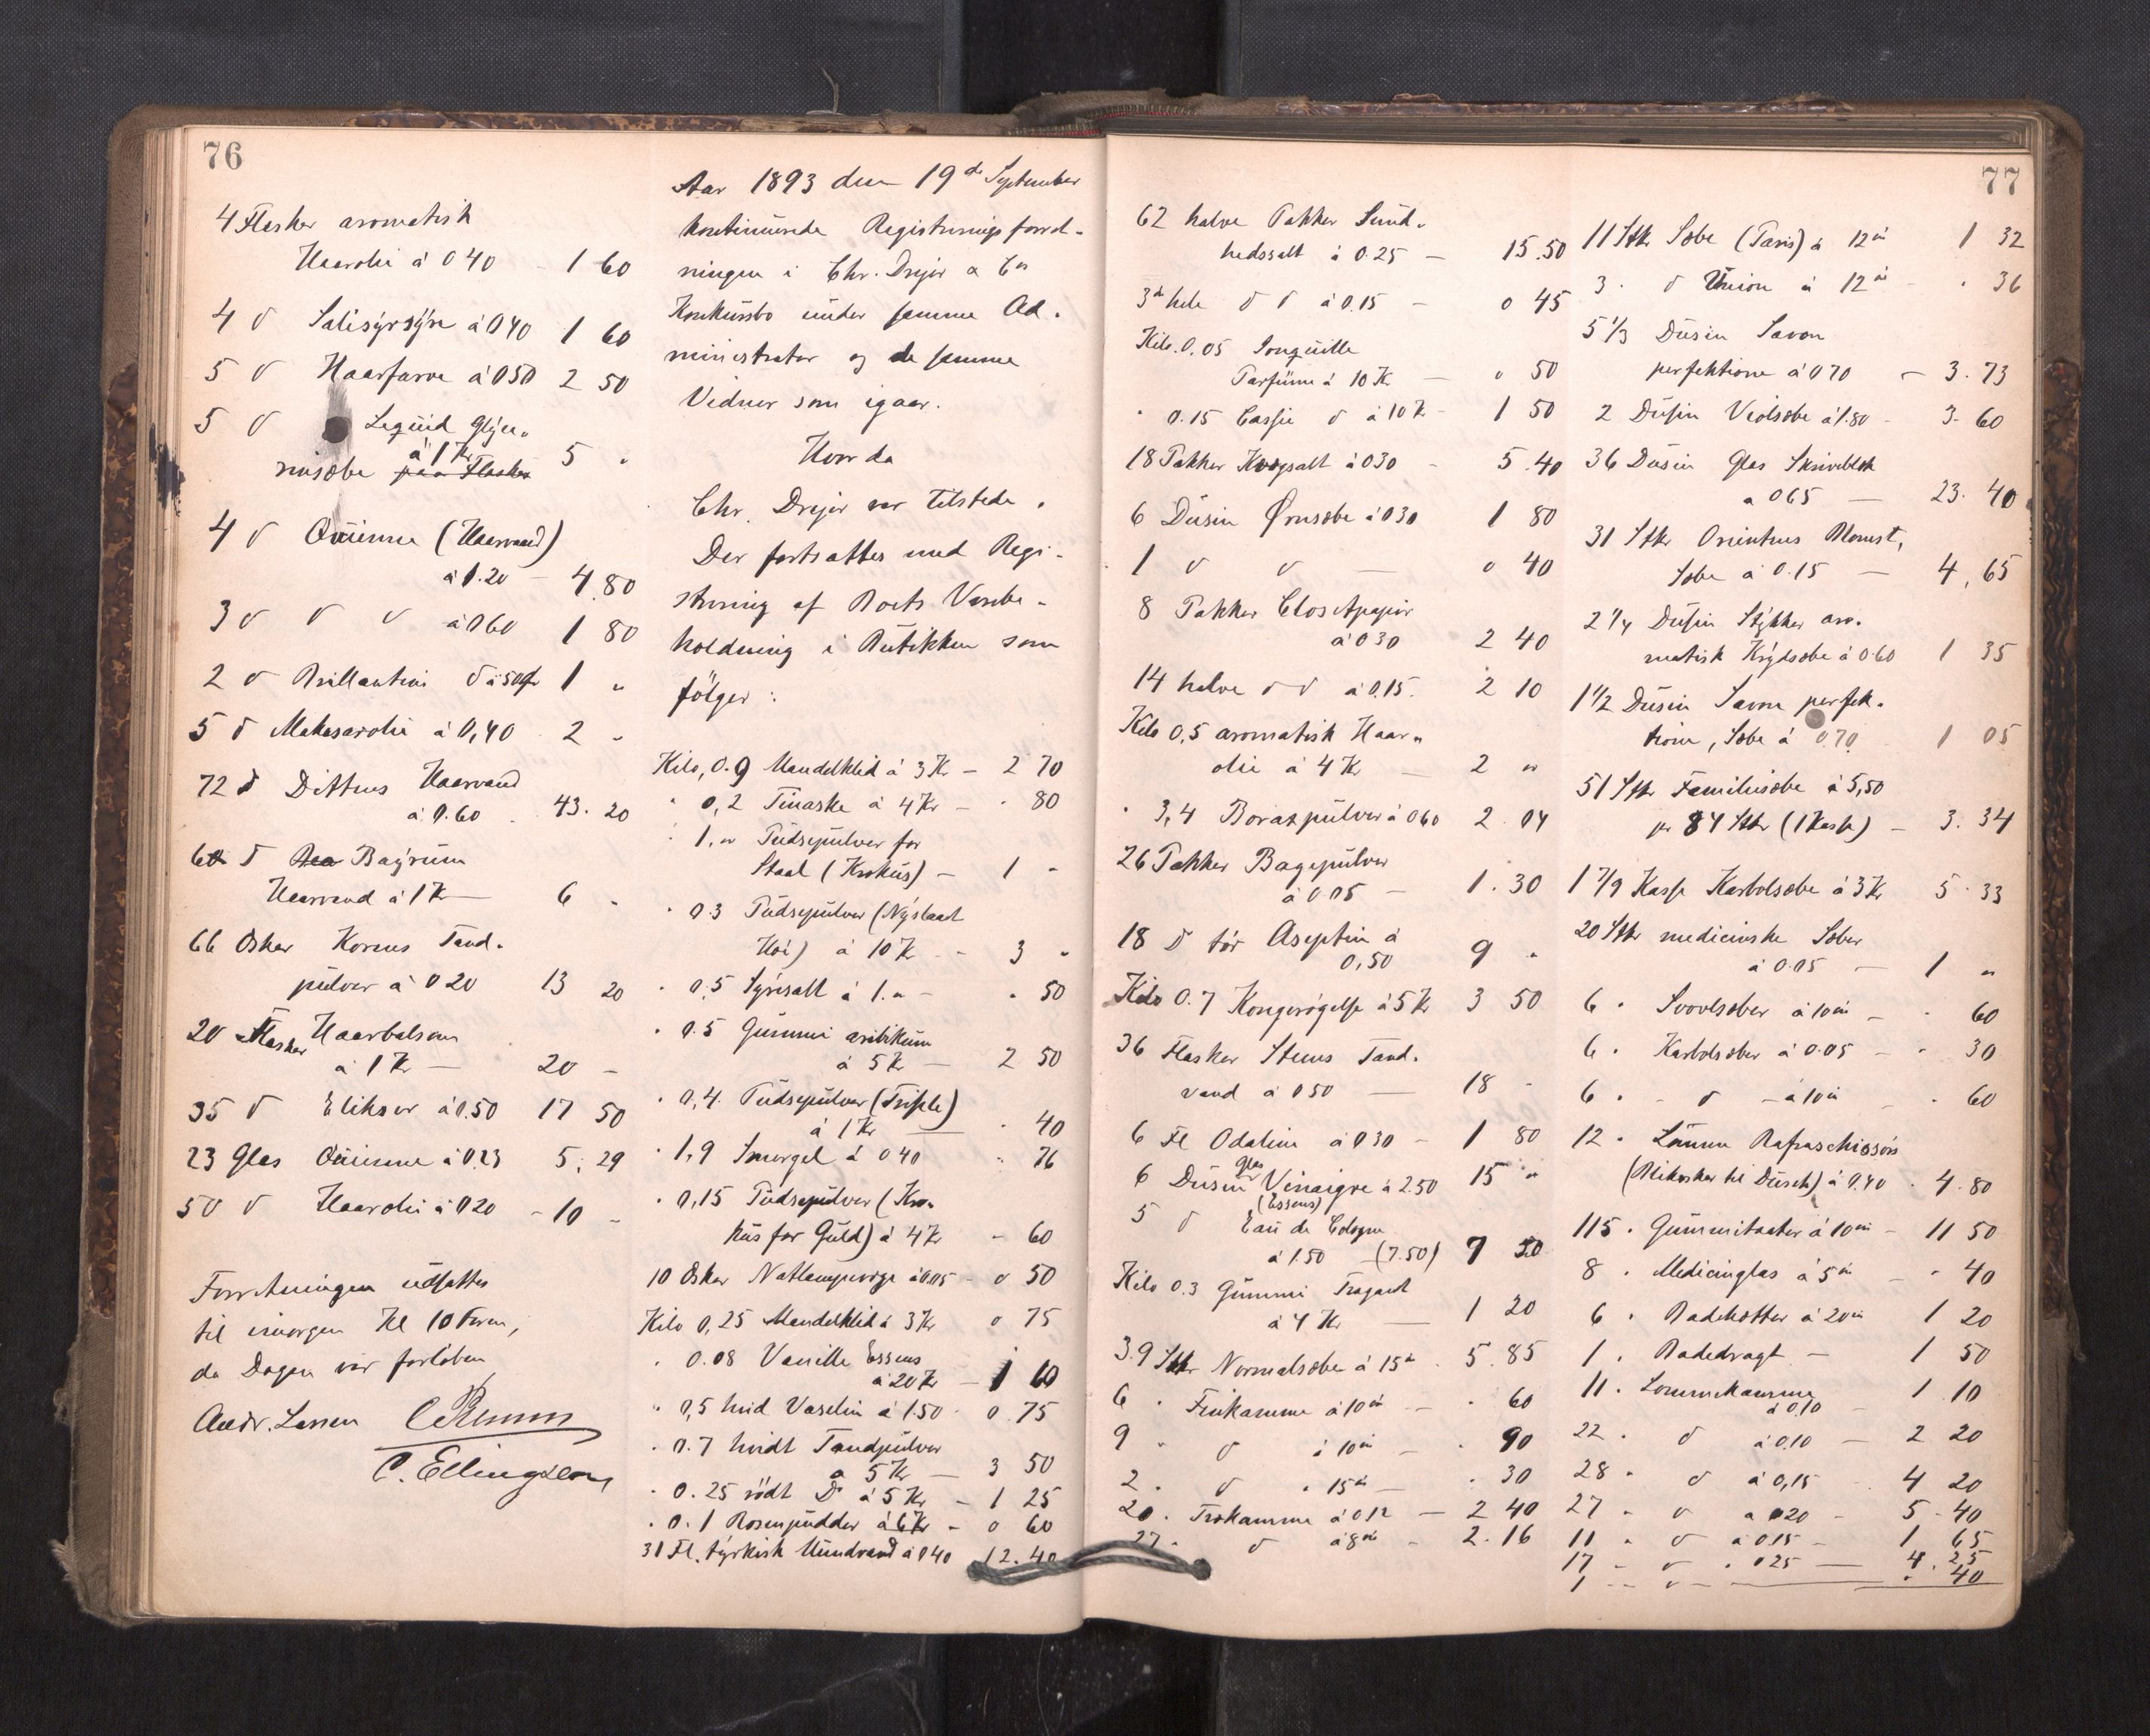 76
4 Flasker aromatisk
Haarolie à 0 40 - 1 60
4 d Salisýrsýre à 0 40 1 60
5 d Haarfarve à 0 50 2 50
5 d Liquid Glýce-
à 1 Kr
rinsæbe paa Flasker 5 "
4 d Quinine (Haarvand)
à 1.20 - 4.80
3 d d d à 0 60 1 80
2 d Brillantini d à 50 ør 1 "
5 d Makasarolie à 0,40 2 -
72 d Dittens Haarvand
à 0.60 43. 20
6 d Baýrum
Haarvand à 1 K - 6 -
66 Æsker Korens Tand-
pulver à 0 20 13 20
20 Flasker Haarbalsam
à 1 Kr - 20 -
35 d Eliksir à 0.50 17 50
23 Glas Quinine à 0.23 5. 29
50 d Haarolie à 0 20 - 10 -
Forretningen udsattes
til imorgen Kl 10 Form,
da Dagen var forløben
Andr. Larsen
C. Ellingsen
Aar 1893 den 19de September
kontinuerede Registreringsforret-
ningen i Chr. Drejer & Co
Konkursbo under samme Ad-
ministrator og de samme
Vidner som igaar.
Hvorda
Chr. Drejer var tilstede.
Der fortsattes med Regi-
strering af Boets Varebe-
holdning i Butikken som
følger:
Kilo, 0.9 Mandelklid à 3 Kr - 2 70
" 0,2 Tinaske à 4 Kr - " 80
" 1, " Pudsepulver for
Staal (Krokus) - 1 -
" 0.3 Pudsepulver (Nýslaat
Hø) à 10 K - 3 -
" 0.5 Sýresalt à 1. " - " 50
" 0.5 Gummi aribikum
à 5 Kr - 2 50
" 0,4 Pudsepulver (Triple)
à 1 Kr - " 40
" 1,9 Smergel à 0 40 " 76
" 0,15 Pudsepulver (Kro-
kus for Guld) à 4 Kr - 60
10 Æsker Natlampevæge à 0.05 - 0 50
Kilo 0,25 Mandelklid à 3 Kr 0 75
" 0.08 Vanille Essens
à 20 Kr - 1 60
" 0,5 hvid Vaselin à 1.50 0.75
" 0.7 hvidt Tandpulver
à 5 Kr - 3 50
" 0.25 rødt Do à 5 Kr - 1 25
" 0.1 Rosenpudder à 6 Kr - 0 60
31 Fl. týrkisk Mundvand à 0 40 12.40
77
62 halve Pakker Sund-
hedssalt à 0.25 - 15.50
3 hele d d à 0.15 - 0 45
Kilo. 0.05 Jonquille
Parfume à 10 K - 0 50
" 0.15 Cassie d à 10 K - 1 50
18 Pakker Krogsalt à 0 30 - 5.40
6 Dusin Ørnsæbe à 0 30 1 80
1 d d - 0 40
8 Pakker Closetpapir
à 0 30 2 40
14 halve d d à 0.15. 2 10
Kilo 0,5 aromatisk Haar-
olie à 4 Kr - 2 "
" 3,4 Boraxpulver à 0 60 2.04
26 Pakker Bagepulver
à 0 05 - 1.30
18 D tør Aseptin à
0,50 9 "
Kilo 0.7 Kongerøgelse à 5 Kr 3 50
36 Flasker Stens Tand-
vand à 0 50 - 18 -
6 Fl Odalin à 0 30 - 1 80
6 Dusin Glas Vinaigre à 2.50 15 "
(Essens)
5 d Eau de Cologne
à 1.50 (7.50) 7 50
Kilo 0.3 Gummi Tragant
à 4 Kr - 1 20
39 Stk Normalsæbe à 15 ør 5.85
6 " Finkamme à 10 ør - " 60
9 " d à 10 ør - " 90
2 " d " 15 ør - " 30
20 " Trækamme à 0 12 - 2 40
27 " d à 8 ør - 2.16
11 Stk Sæbe (Paris) à 12 ør 1 32
3 " d Union à 12 ør - " 36
5 1/3 Dusin Savon
perfektione à 0 70 - 3.73
2 Dusin Violsæbe à 1.80 - 3.60
36 Dusin Glas Skriveblæk
à 0 65 - 23.40
31 Stk Orientens Blomst.
Sæbe à 0.15 - 4,65
2 1/4 Dusin Stýkker aro-
matisk Krýdsæbe à 0.60 1 35
1 1/2 Dusin Savon perfek-
tione, Sæbe à 0.70 1 05
51 Stk Familiesæbe à 5,50
pr 84 Stk (1 Kasse) - 3.34
1 7/9 Kasse Karbolsæbe à 3 Kr 5.33
20 Stk medicinske Sæber
à 0.05 - 1 "
6 " Svovlsæber à 10 ør - " 60
6 " Karbolsæber à 0.05 - " 30
6 " - d - à 10 ør - " 60
12 " Lamme Rafraschissørs
(Blikæsker til Dusch) à 0.40 " 4.80
115 " Gummitaater à 10 ør - 11 50
8 " Medicinglas à 5 ør - " 40
6 " Badehætter à 20 ør 1 20
1 " Badedragt - 1 50
11 " Lommekamme
à 0,10 1 10
22 " d à 0.10 - 2 20
28 " d à 0,15 4 20
27 " d à 0 20 - 5.40
11 " d à 0.15 - 1 65
17 - d " 0 25 - 4.25
1 - d - " 40